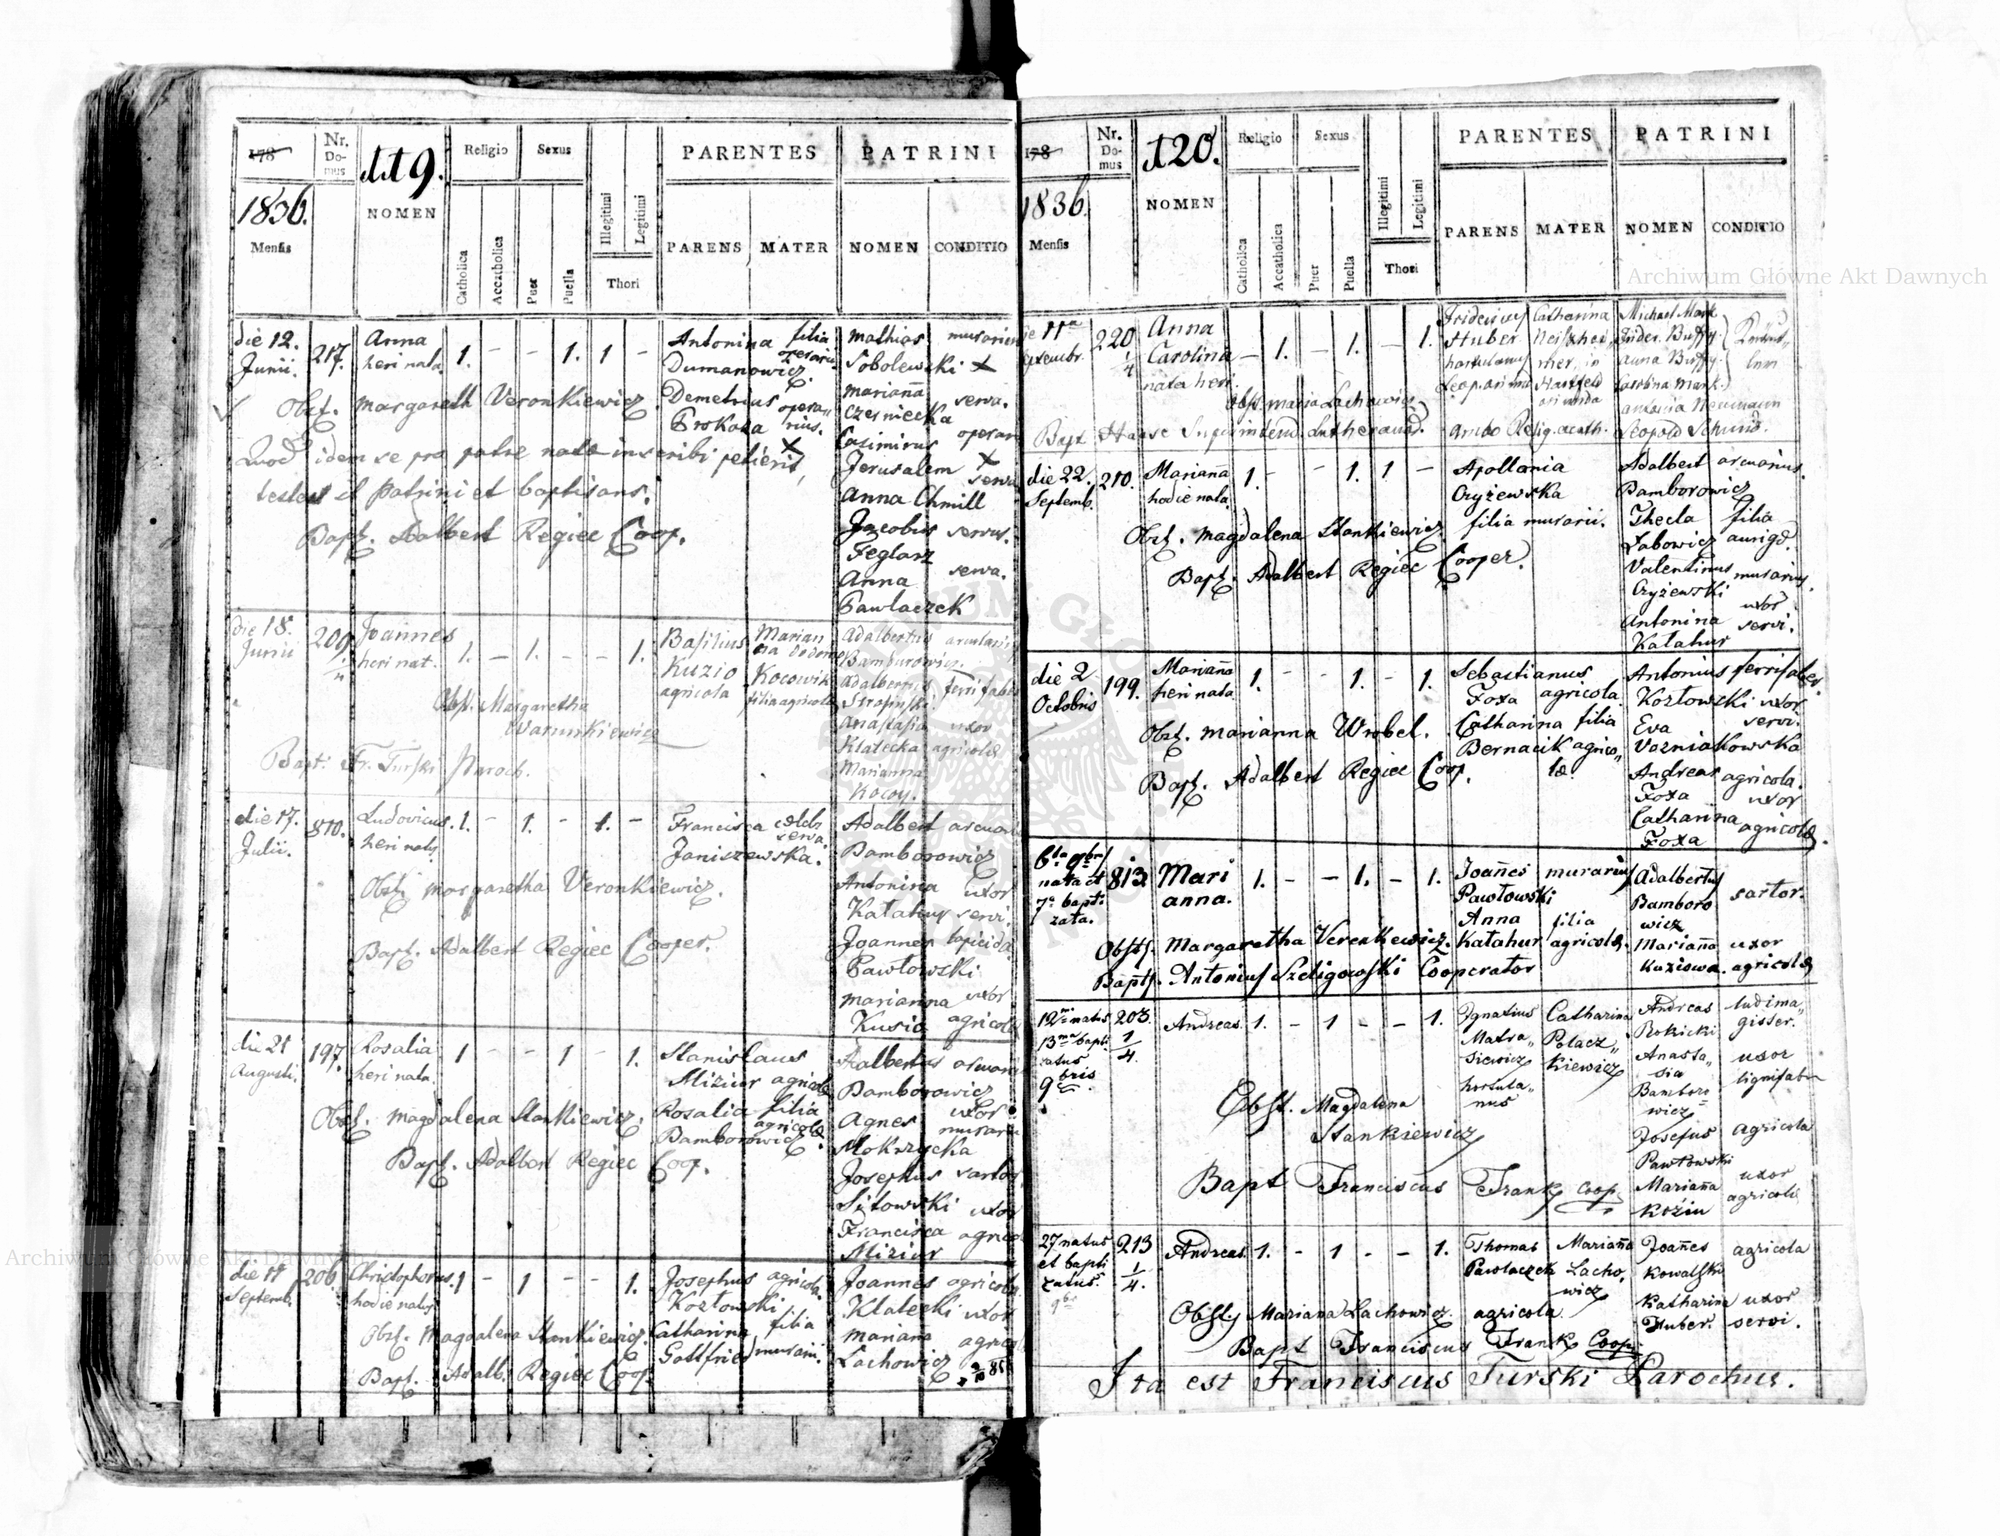 178
1836.
Mensis
Nr. Domus
119.
NOMEN
Religio
Catholica
Accatholica
Sexus
Puer
Puella
Illegitimi
Legitimi
Thori
PARENTES
PARENS
MATER
PATRINI
NOMEN
CONDITIO
die 12.
Junii.
217.
Anna
heri nata
1. - - 1. 1 -
Antonina filia
Dumanowicz operarii
Demetrius opera-
Prokopa rius.
X
Mathias murarius
Sobolewski X
Marianna serva.
Czerniecka
Casimirus operari
Jerusalem X
Anna Chmill serva
Jacobus servus.
Feglarz
Anna serva.
Pawlaczek
Obst. Margareth Veronkiewicz
Quod idem se pro patre natae inscribi petierit,
testes et patrini et baptisans.
Bapt. Adalbert Regiec Coop.
die 18.
Junii
209
Joannes
heri nat.
1. - 1. - - 1.
Basilius
Kuzio
agricola
Marian
na
Kocowik
filia agricolae
Adalbertus
Bamburowicz.
Adalbertus ferri faber
Serafinski
Anastasia uxor
Klatecka agricolae
Marianna
Kocoy.
Obst. Margaretha
Warunkiewicz
Bapt: Fr. Turski Paroch.
die 17.
Julii.
810.
Ludovicus
heri natus
1. - 1. - 1. -
Francisca coelebs
Janiszewska. serva
Adalbert
Bamborowicz
Antonina uxor
Katahur servi.
Joannes lapicida
Pawłowski
Marianna uxor
Kusio agricolae
Obst. Margaretha Veronkiewicz.
Bapt. Adalbert Regiec Cooper.
die 21
Augusti.
197.
Rosalia
heri nata.
1 - - 1 - 1.
Stanislaus
Mizior agricola
Rosalia filia
Bamborowicz agricolae
Adalbertus
Bamborowicz
Agnes uxor
Mokrzycka murarii
Josephus sartor
Sitowski uxor
Francisca agricolae
Mizior
Obst. Magdalena Stankiewicz.
Bapt. Adalbert Regiec Coop.
die 11
Septemb.
206.
Christophorus
hodie natus
1 - 1 - - 1.
Josephus agricola.
Kozłowski
Catharina filia
Gottfried murarii.
Joannes agricola
Klatecki uxor
Mariana agricolae
Lachowicz
Obst. Magdalena Stankiewicz.
Bapt. Adalb. Regiec Coop.
178
1836.
Mensis
Nr. Domus
120.
NOMEN
Religio
Catholica
Accatholica
Sexus
Puer
Puella
Illegitimi
Legitimi
Thori
PARENTES
PARENS
MATER
PATRINI
NOMEN
CONDITIO
die 11a
220
Anna
Carolina
nata heri.
- 1. - 1. - 1.
Fridericus
Huber
hortulanus
Catharina
Michael Mark
Frider. Buffy
Anna Buffy
Carolina Mark.
Antonia Neumann
Leopold Schmid.
Obst. Maria Lachowicz
Bapt. Haase Superintend. Lutheranus.
ambo Relig. acath.
die 22.
Septemb.
210.
Marianna
hodie nata.
1. - - 1. 1 -
Apollonia
Czyżewska
filia murarii.
Adalbert
Bamborowicz
Thecla filia
Labowicz aurigae.
Valentinus murarius.
Czyżewski
Antonina uxor
Katahur servi.
Obst. Magdalena Stankiewicz.
Bapt. Adalbert Regiec Cooper.
die 2
Octobris
199.
Marianna
heri nata
1. - - 1. - 1.
Sebastianus
Foxa agricola.
Catharina filia
Bernacik agrico-
lae.
Antonius ferrifaber.
Kozłowski uxor
Eva servi.
Vozniakowska
Andreas agricola.
Foxa uxor
Catharina agricolae.
Foxa
Obst. Marianna Wrobel.
Bapt. Adalbert Regiec Coop.
6ta 9bris
nata et
7a bapti-
zata.
813.
Mari
anna.
1. - - 1. - 1.
Joannes murarius
Pawłowski
Anna filia
Katahur agricolae.
Adalbertus
Bamboro sartor.
wicz
Marianna uxor
Kuziowa. agricolae
Obst. Margaretha Verenkiewicz.
Bapt. Antonius Szeligowski Cooperator
12ma natus
13ma bapti
zatus
9bris
203.
1/4.
Andreas.
1. - 1 - - 1.
Ignatius
Matia-
siewicz
hortula-
nus
Catharina
Polacz-
kiewicz
Andreas ludima-
Rokicki gister.
Anasta- uxor
sia lignifabri
Bamboro-
wicz
Josefus agricola
Pawłowski
Marianna uxor
Koziu agricolae
Obst. Magdalena
Stankiewicz
Bapt Franciscus Frank Coop.
27 natus
et bapti
zatus.
9bris
213
1/4.
Andreas.
1. - 1 - - 1.
Thomas
Pawlaczek
agricola
Marianna
Lacho-
wicz
Joannes agricola
Kowalski
Katharina uxor
Huber. servi.
Obst. Mariana Lachowicz.
Bapt Franciscus Frank Coop.
Ita est Franciscus Turski Parochus.
Archiwum Główne Akt Dawnych
Archiwum Główne Akt Dawnych